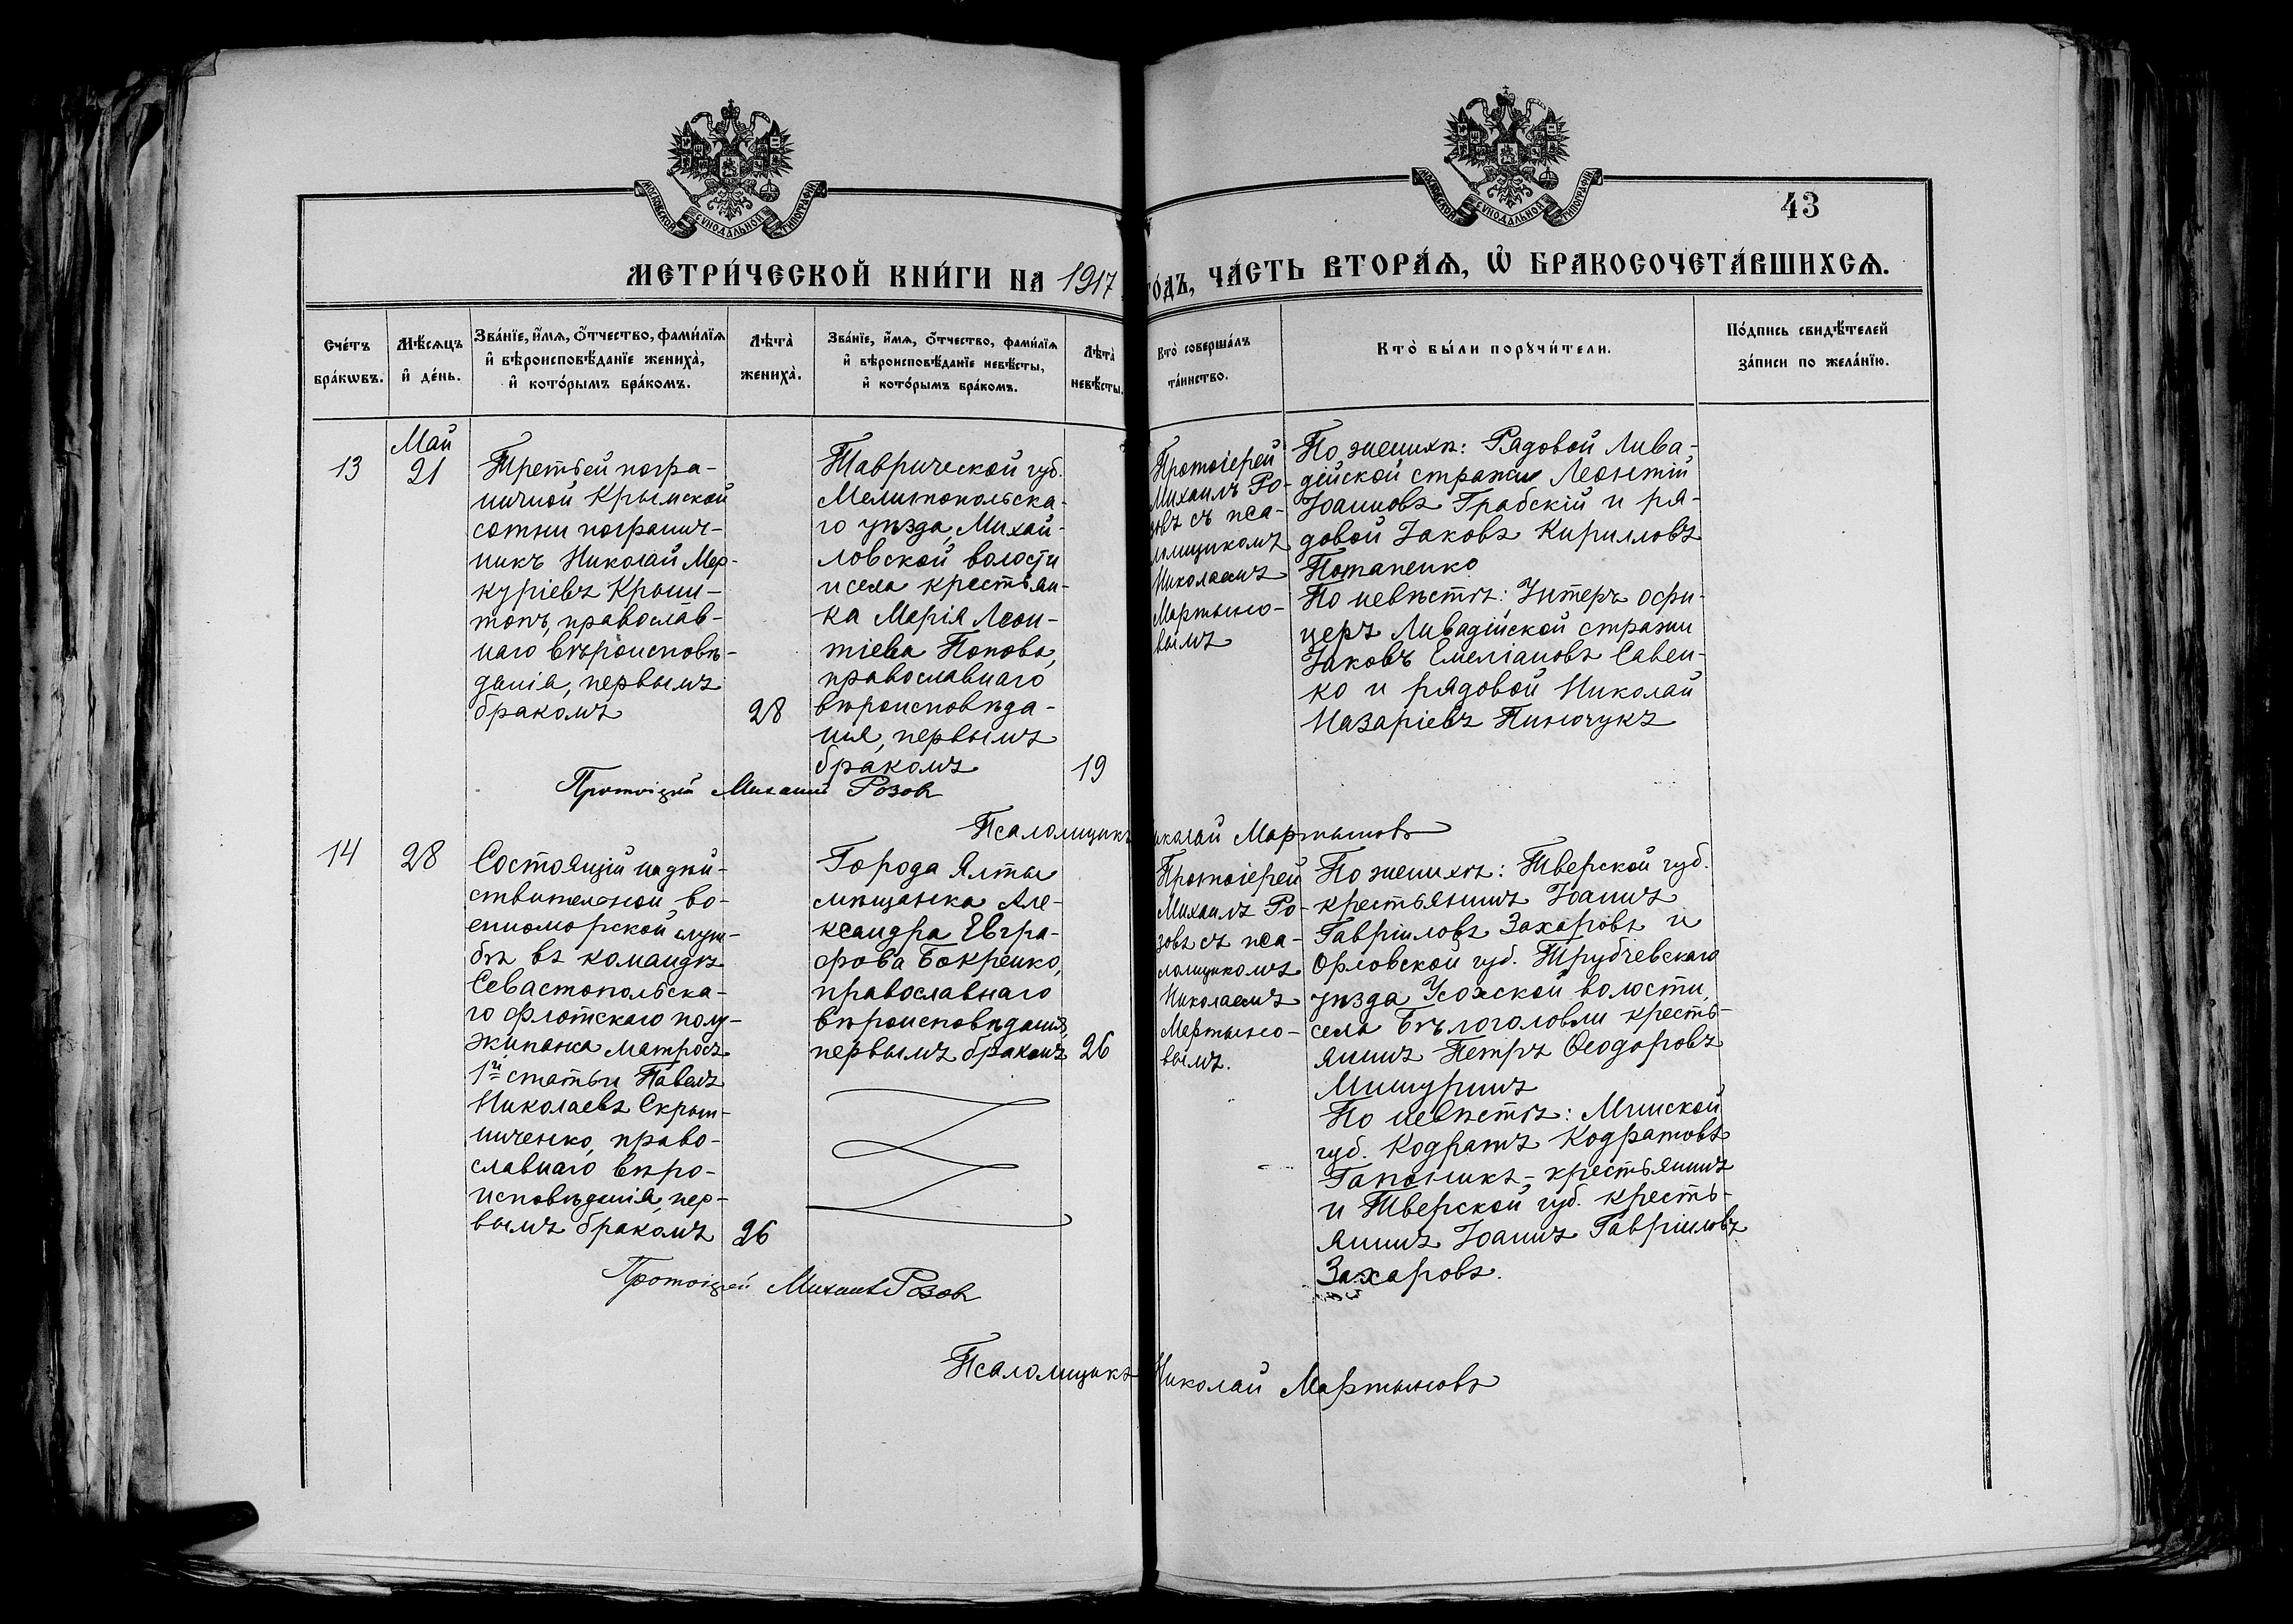 МОСКОВСКОЙ СѴНОДАЛЬНОЙ ТИПОГРАФІИ
МОСКОВСКОЙ СѴНОДАЛЬНОЙ ТИПОГРАФІИ
43
МЕТРИ́ЧЕСКОЙ КНИ́ГИ НА 1917 ГО́ДЪ, ЧА́СТЬ ВТОРА́Ѧ, Ѽ БРАКОСОЧЕТА́ВШИХСѦ.
Сче́тъ
бра́кѡвъ.
Мѣ́сѧцъ
и҆ де́нь.
Зва́нїе, и҆́мѧ, ѻ҆́тчество, фами́лїѧ
и҆ вѣроисповѣ́данїе жениха̀,
и҆ кото́рымъ бра́комъ.
Лѣта̀
жениха̀.
Зва́нїе, и҆́мѧ, ѻ҆́тчество, фами́лїѧ
и҆ вѣроисповѣ́данїе невѣ́сты,
и҆ кото́рымъ бра́комъ.
Лѣта̀
невѣ́сты.
Кто̀ соверша́лъ
та́инство.
Кто̀ бы́ли порꙋчи́тели.
По́дпись свидѣ́телей
за́писи по жела́нїю.
13
Май
21
Третьей погра-
ничной Крымской
сотни погранич-
никъ Николай Мер-
куріевъ Крыш-
топъ, православ-
наго вѣроисповѣ-
данія, первымъ
бракомъ
28
Таврической губ.
Мелитопольска-
го уѣзда, Михай-
ловской волости
и села крестьян-
ка Марія Леон-
тіева Попова,
православнаго
вѣроисповѣда-
нія, первымъ
бракомъ
19
Протоіерей
Михаилъ Ро-
зовъ съ пса-
ломщикомъ
Николаемъ
Мартыно-
вымъ
По женихѣ: Рядовой Лива-
дійской стражи Леонтій
Іоанновъ Грабскій и ря-
довой Іаковъ Кирилловъ
Потапенко
По невѣстѣ: Унтеръ офи-
церъ Ливадійской стражи
Іаковъ Емеліановъ Савен-
ко и рядовой Николай
Назаріевъ Пинчукъ
Протоіерей Михаилъ Розовъ
Псаломщикъ Николай Мартыновъ
14
28
Состоящій на дѣй-
ствительной во-
енноморской служ-
бѣ въ командѣ
Севастопольска-
го флотскаго полу-
экипажа матросъ
1й статьи Павелъ
Николаевъ Скрып-
ниченко, право-
славнаго вѣро-
исповѣданія, пер-
вымъ бракомъ
26
Города Ялты
мѣщанка Але-
ксандра Евгра-
фова Бокренко,
православнаго
вѣроисповѣданія,
первымъ бракомъ
26
Протоіерей
Михаилъ Ро-
зовъ съ пса-
ломщикомъ
Николаемъ
Мартыно-
вымъ.
По женихѣ: Тверской губ.
крестьянинъ Іоаннъ
Гавріиловъ Захаровъ и
Орловской губ. Трубчевскаго
уѣзда Усохской волости,
села Бѣлоголовли кресть-
янинъ Петръ Ѳеодоровъ
Мишуринъ
По невѣстѣ: Минской
губ. Кодратъ Кодратовъ
Гапоникъ, - крестьянинъ
и Тверской губ. кресть-
янинъ Іоаннъ Гавріиловъ
Захаровъ.
Протоіерей Михаилъ Розовъ
Псаломщикъ Николай Мартыновъ